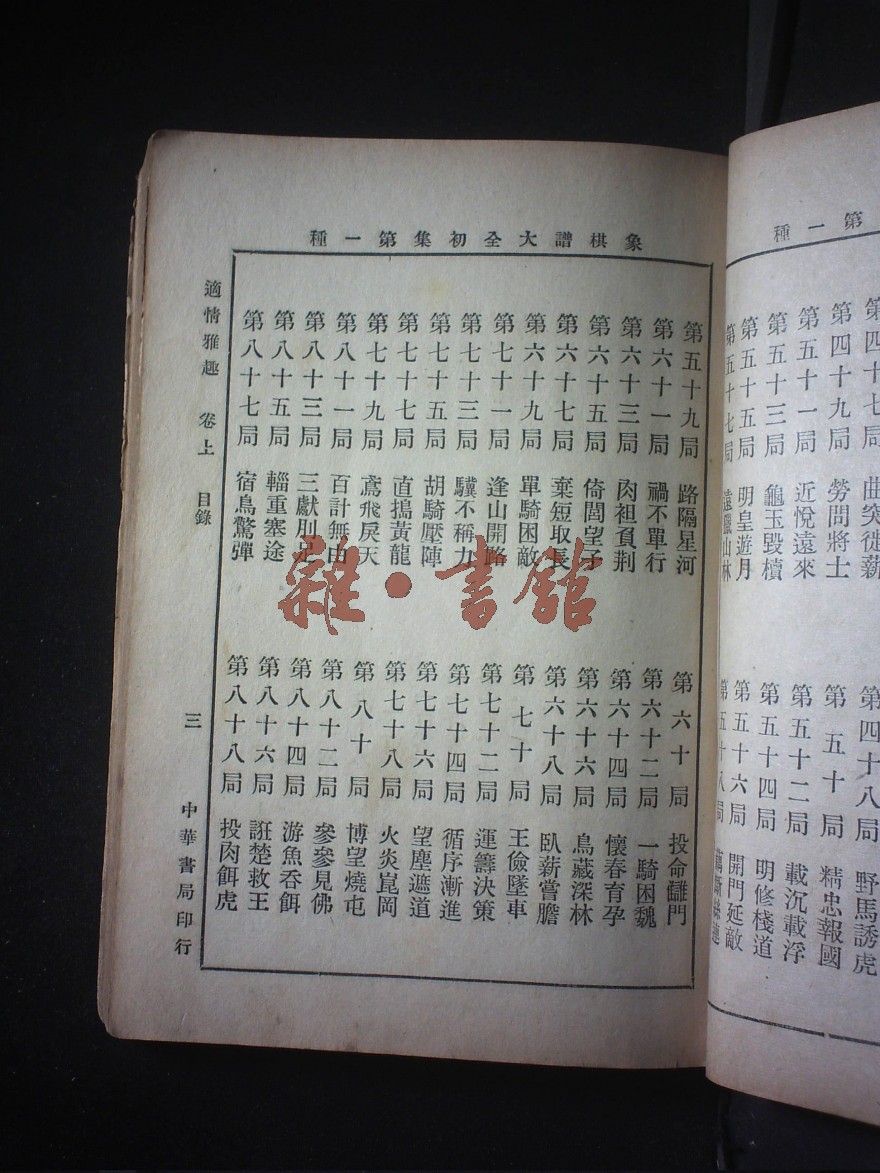 第一種
第四十七局 曲突徙薪 第四十八局 野馬誘虎
第四十九局 勞問將士 第五十局 精忠報國
第五十一局 近悅遠來 第五十二局 載沉載浮
第五十三局 龜玉毀櫝 第五十四局 明修棧道
第五十五局 明皇遊月 第五十六局 開門延敵
第五十七局 遠獵山林 第五十八局 藕斷絲連
象棋譜大全初集第一種
第五十九局 路隔星河 第六十局 投命讎門
第六十一局 禍不單行 第六十二局 一騎困魏
第六十三局 肉袒負荆 第六十四局 懷春育孕
第六十五局 倚閭望子 第六十六局 鳥藏深林
第六十七局 棄短取長 第六十八局 臥薪嘗膽
第六十九局 單騎困敵 第七十局 王儉墜車
第七十一局 逢山開路 第七十二局 運籌決策
第七十三局 驥不稱力 第七十四局 循序漸進
第七十五局 胡騎壓陣 第七十六局 望塵遮道
第七十七局 直搗黃龍 第七十八局 火炎崑岡
第七十九局 鳶飛戾天 第八十局 博望燒屯
第八十一局 百計無由 第八十二局 參參見佛
第八十三局 三獻刖足 第八十四局 游魚吞餌
第八十五局 輜重塞途 第八十六局 誑楚救王
第八十七局 宿鳥驚彈 第八十八局 投肉餌虎
適情雅趣 卷上 目錄 三 中華書局印行
雜·書館